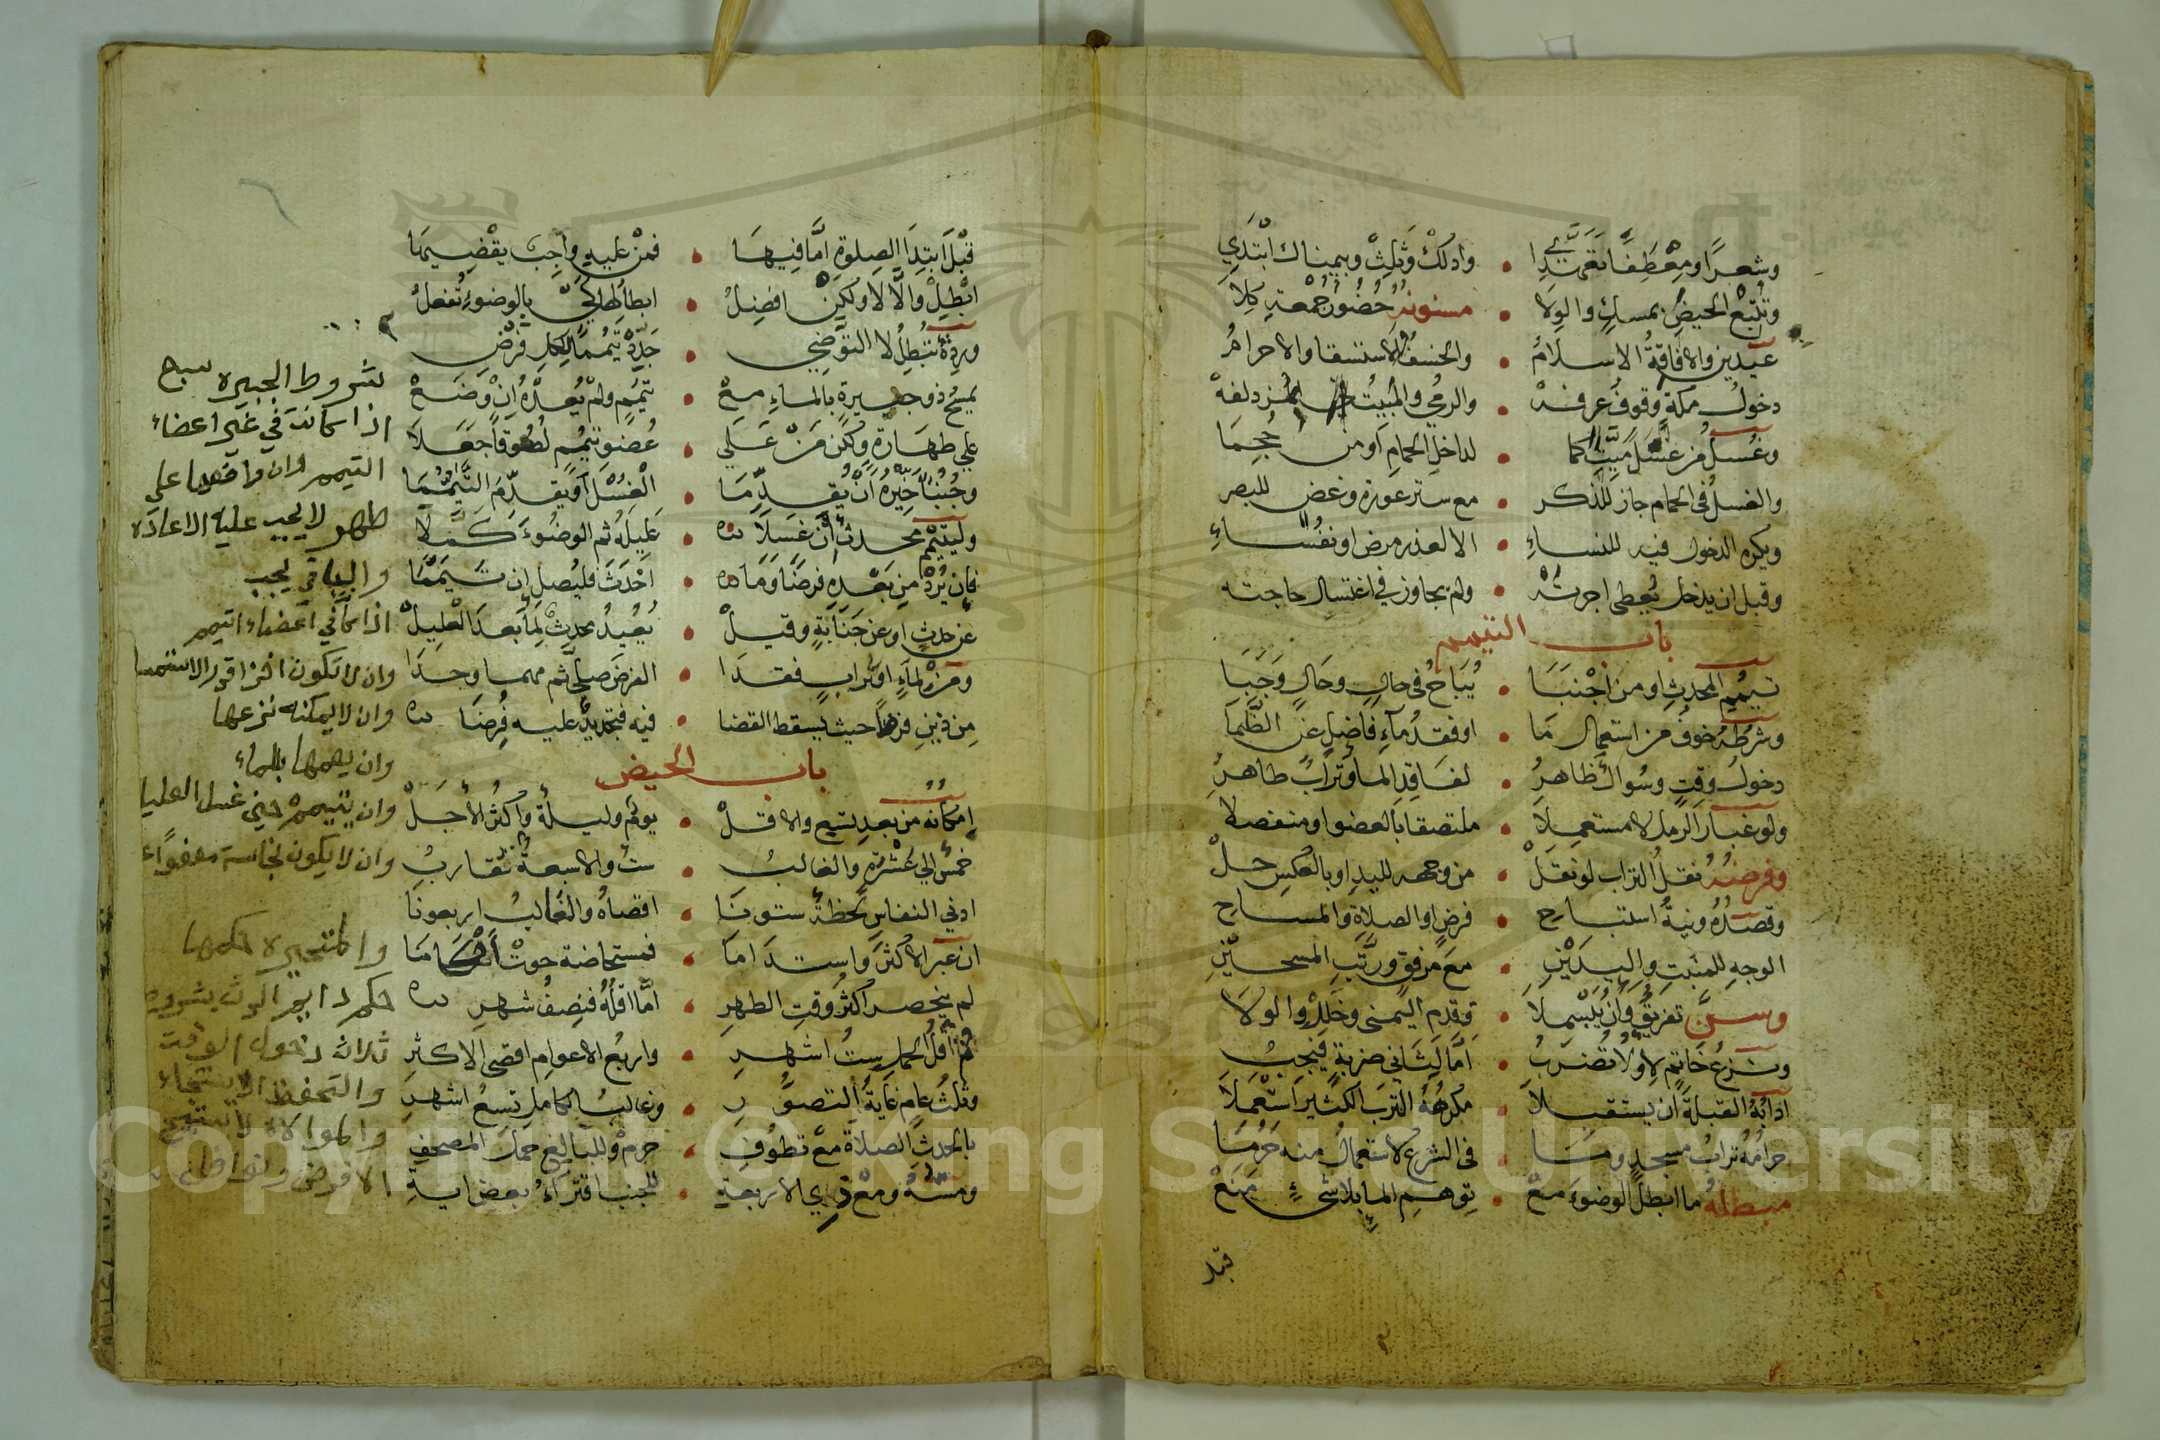 وشعرًا ومعطفًا تعهدا • وادلك وثلث وبيمناك ابتدي
وتتبع الحيض بمسك والولا • مسنونه حضور جمعة كلا
عيدين والافاقة الاسلام • والخسف الاستسقا والاحرام
دخول مكة وقوف عرفه • والرمي والمبيت بالمزدلفه
وغسل من غسل ميتا كما • لداخل الحمام او من حجما
والغسل في الحمام جاز للذكر • مع ستر عورة وغض للبصر
ويكره الدخول فيه للنساء • الا لعذر مرض او نفساء
وقبل ان يدخل يعطى اجرته • ولم يجاوز في اغتسال حاجته
باب التيمم
تيمم المحدث او من اجنبا • يباح في حال وحال وجبا
وشرطه خوف من استعمال ما • او فقد ماء فاضل عن الظما
دخول وقت وسؤال ظاهر • لفاقد الما وتراب طاهر
ولو غبار الرمل لا مستعملا • ملتصقا بالعضو او منفصلا
وفرضه نقل التراب لو نقل • من وجهه لليد او بالعكس حل
وقصده ونية استباح • فرض او الصلاة والمساح
الوجه للمنبت واليدين • مع مرفق ورتب المسحين
وسن تفريق وان يبسملا • وقدم اليمنى وخلل والولا
ونزع خاتم لاولى تضرب • اما لثاني ضربة فيجب
ادابه القبلة ان يستقبلا • مكروهه الترب الكثير استعملا
حرامه تراب مسجد وما • في الشرع الاستعمال منه حرما
مبطله ما ابطل الوضوء مع • توهم الما بلا شيء منع
قبل
قبل ابتدا الصلوة اما فيها • فمن عليه واجب يقضيها
ابطل والا لا ولكن افضل • ابطالها كي بالوضوء تفعل
وردة تبطل لا التوضي • جدد تيمما لكل فرض
يمسح ذو جبيرة بالماء مع • تيمم ولم يعده ان وضع
على طهارة ولكن من على • عضو تيمم لصوقا جعلا
وجنبا خيره ان يقدما • الغسل او يقدم التيمما
وليتيمم محدث ان غسلا • عليله ثم الوضوء كملا
فان يرد من بعده فرضا وما • احدث فليصل ان تيمما
عن حدث او عن جنابة وقيل • يعيد محدث لما بعد العليل
ومن لماء او تراب فقدا • الفرض صلى ثم مهما وجدا
من ذين فردا حيث يسقط القضا • فيه فتجديد عليه فرضا
باب الحيض
امكانه من بعد تسع والاقل • يوم وليلة واكثر الاجل
خمس الى عشرة والغالب • ست والا سبعة تقارب
ادنى النفاس لحظة ستونا • اقصاه والغالب اربعونا
ان عبر الاكثر واستداما • فمستحاضة حوت احكاما
لم ينحصر اكثر وقت الطهر • اما اقله فنصف شهر
ثم اقل الحمل ست اشهر • واربع الاعوام اقصى الاكثر
وثلث عام غاية التصور • وغالب الكامل تسع اشهر
بالحدث الصلاة مع تطوف • حرم وللبالغ حمل المصحف
ومسه ومع ذي الاربعة • للجنب اقتراء بعض اية
شروط الجبيره سبع
اذا كانت في غير اعضاء
التيمم وان وضعها على
طهر لا يجب عليه الاعاده
والباقي يجب
اذا كا في اعضاء اتيمم
وان لا تكون اخذ قدر الاستمسا
وان لا يمكنه نزعها
وان يعمها بالماء
وان يتيمم حين غسل العليا
وان لا يكون نجاسة معفوا
والمتحيره حكمها
حكم دايم الحدث بشروط
ثلاث دخول الوقت
والتحفظ الاستنجاء
والموالاه لا تستبيح
الا فرض ونوافل
Copyright © King Saud University
1957